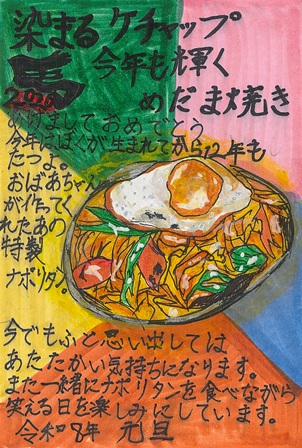 染まるケチャップ
今年も輝く
めだま焼き
馬
2026
あけましておめでとう
今年でぼくが生まれてから12年も
たつよ。
おばあちゃん
が作ってく
れたあの
特製
ナポリタン。
今でもふと思い出しては
あたたかい気持ちになります。
また一緒にナポリタンを食べながら
笑える日を楽しみにしています。
令和8年 元旦